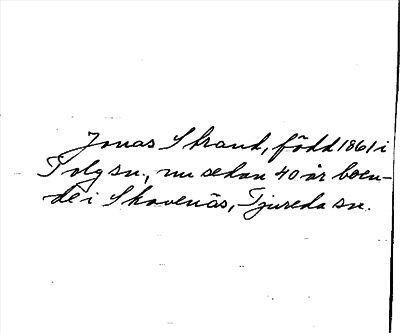 Jonas Strand, född 1861 i
Tolg sn., nu sedan 40 år boen-
de i Skavenäs, Tjureda sn.